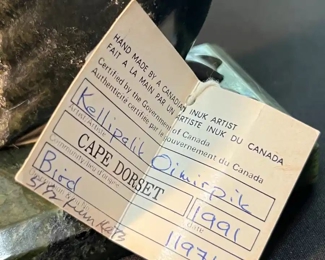 HAND MADE BY A CANADIAN INUK ARTIST
FAIT A LA MAIN PAR UN ARTISTE INUK DU CANADA
Certified by the Government of Canada
Authenticité certifiée par le Gouvernement du Canada
Kellipalik Oimirpik
Artist/Artiste
CAPE DORSET
1991
Community/lieu d'origine
date
Bird
11971